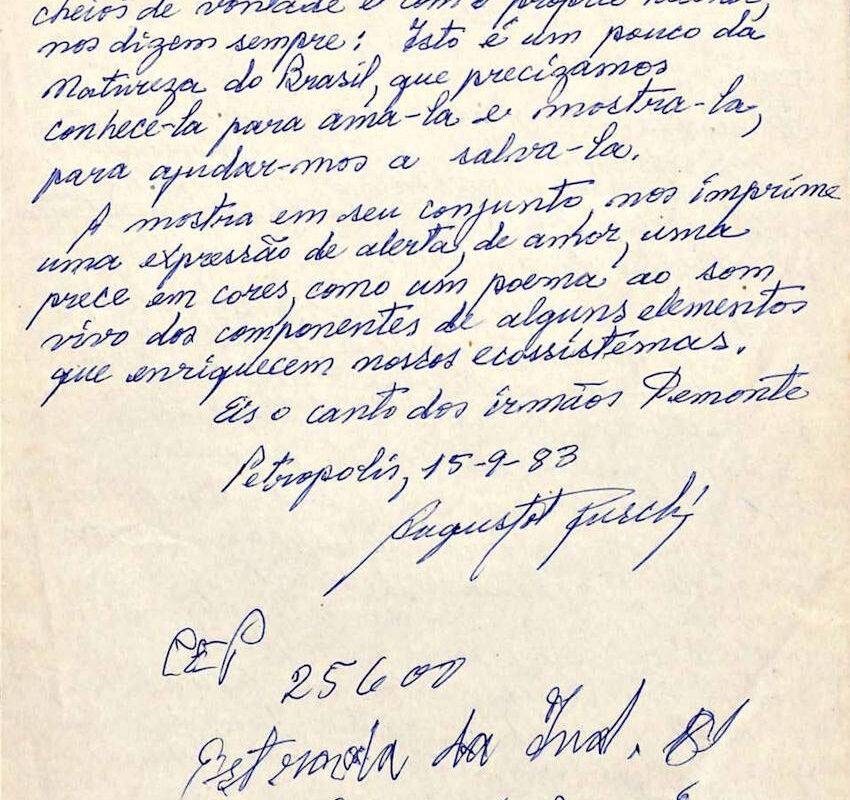 cheios de vontade e com o proprio
nos dizem sempre: Isto é um pouco da
Natureza do Brasil, que precizamos
conhecê-la para ama-la e mostra-la,
para ajudar-mos a salva-la.
A mostra em seu conjunto, nos imprime
uma expressão de alerta, de amor, uma
prece em cores, como um poema ao som
vivo dos componentes de alguns elementos
que enriquecem nossos ecossistemas.
Eis o canto dos irmãos Demonte
Petropolis, 15-9-83
Augusto Ruschi
CEP
25600
Estrada da Ind. 81